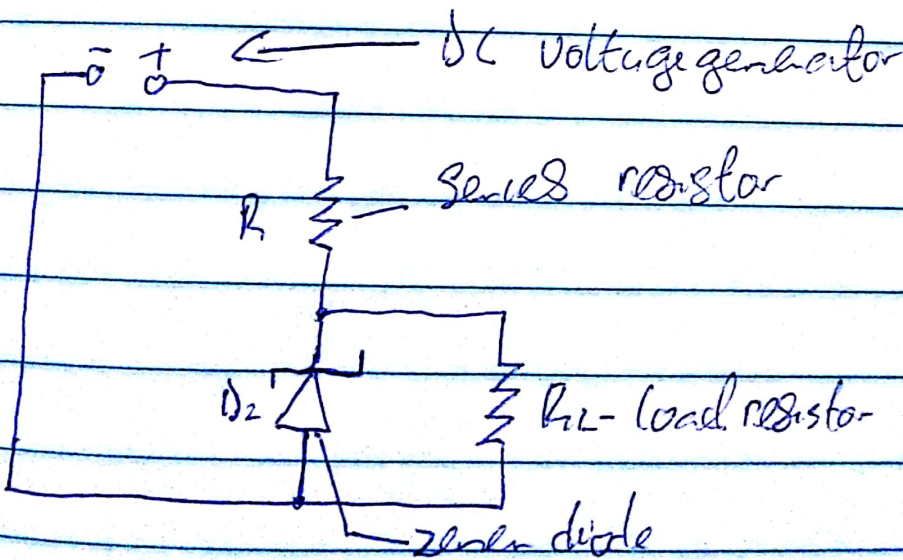 - + DC voltage generator
R series resistor
Dz RL - load resistor
zener diode